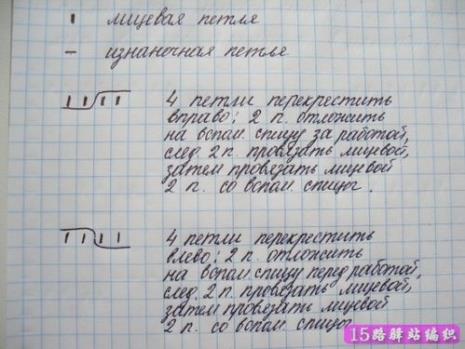 I лицевая петля
— изнаночная петля
4 петли перекрестить
вправо: 2 п. отложить
на вспом. спицу за работой,
след. 2 п. провязать лицевой,
затем провязать лицевой
2 п. со вспом. спицы.
4 петли перекрестить
влево: 2 п. отложить
на вспом спицу перед работой,
след. 2 п. провязать лицевой,
затем провязать лицевой
2 п. со вспом. спицы
15路驿站编织